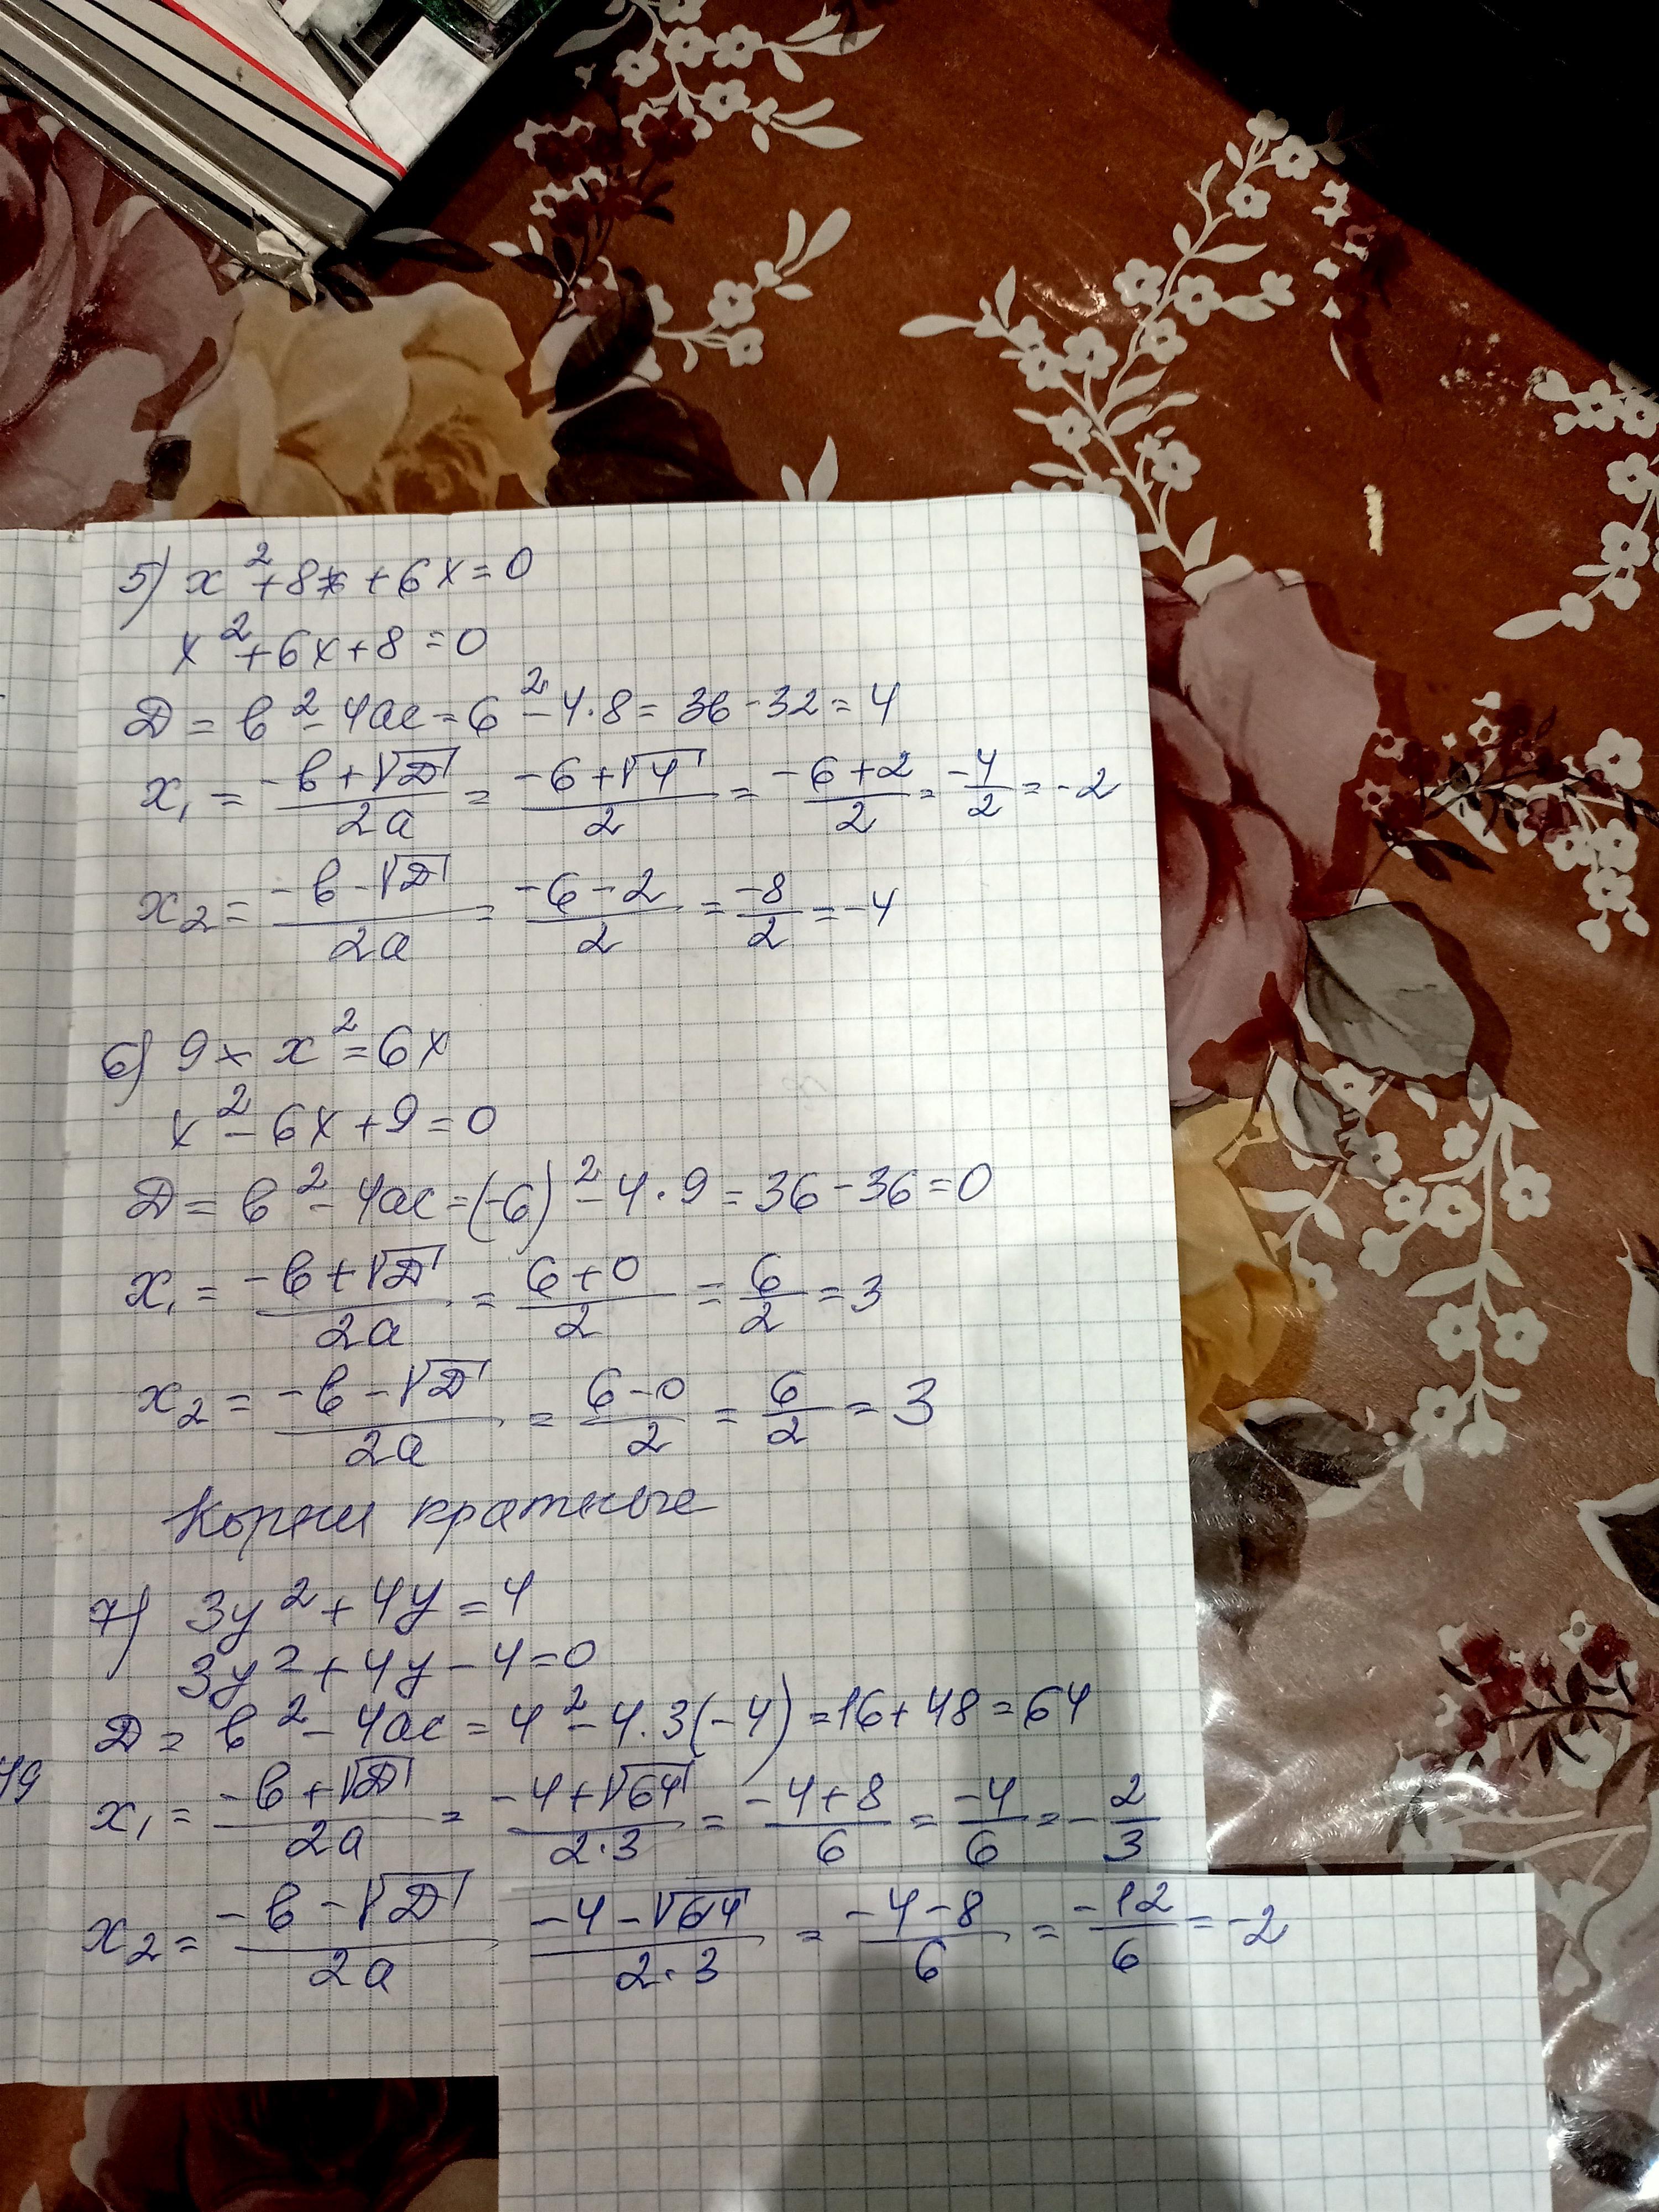 5) x²+8x+6x=0
x²+6x+8=0
D=b²-4ac=6²-4·8=36-32=4
x₁=(-b+√D)/2a=(-6+√4)/2=(-6+2)/2=-4/2=-2
x₂=(-b-√D)/2a=(-6-2)/2=-8/2=-4
6) 9+x²=6x
x²-6x+9=0
D=b²-4ac=(-6)²-4·9=36-36=0
x₁=(-b+√D)/2a=(6+0)/2=6/2=3
x₂=(-b-√D)/2a=(6-0)/2=6/2=3
Корни кратные
7) 3y²+4y=4
3y²+4y-4=0
D=b²-4ac=4²-4·3(-4)=16+48=64
49
x₁=(-b+√D)/2a=(-4+√64)/(2·3)=(-4+8)/6=-4/6=-2/3
x₂=(-b-√D)/2a (-4-√64)/(2·3)=(-4-8)/6=-12/6=-2